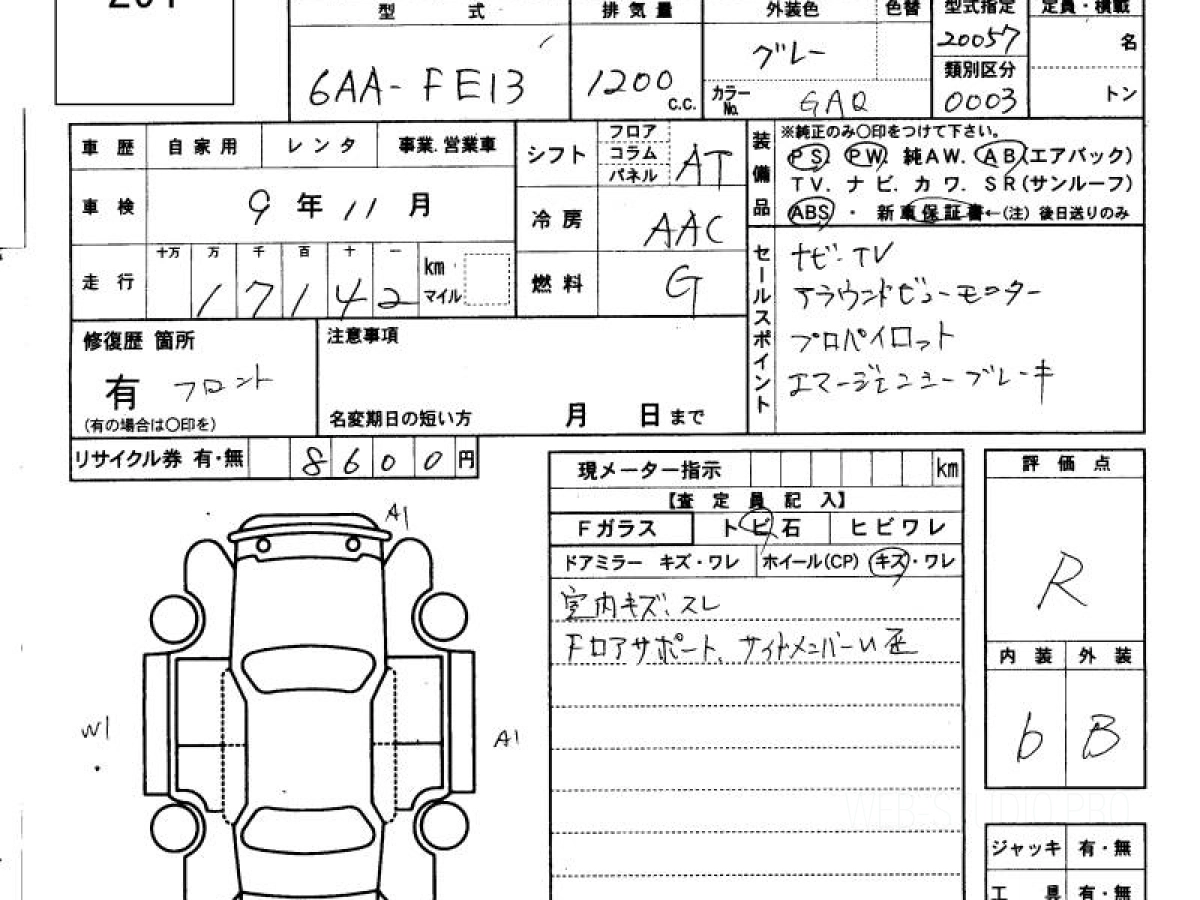 型 式 排 気 量 外装色 色替 型式指定 定員・積載
6AA-FE13 1200 c.c. グレー 20057 名
類別区分
カラーNo. GAQ 0003 トン
車 歴 自 家 用 レ ン タ 事業.営業車
シフト フロア コラム パネル AT
車 検 9 年 11 月
冷 房 AAC
走 行 十万 万 千 百 十 一
17142 km マイル
燃 料 G
装備品 ※純正のみ○印をつけて下さい。
PS. PW. 純AW. AB(エアバック)
TV. ナ ビ. カ ワ. SR(サンルーフ)
ABS ・ 新車保証書←(注) 後日送りのみ
セールスポイント
ナビ・TV
アラウンドビューモニター
プロパイロット
エマージェンシーブレーキ
修復歴 箇所
有 フロント
(有の場合は○印を)
注意事項
名変期日の短い方 月 日 まで
リサイクル券 有・無 8600 円
現メーター指示 km
【査 定 員 記 入】
Fガラス ト ビ 石 ヒ ビ ワ レ
ドアミラー キズ・ワレ ホイール(CP) キズ・ワレ
室内キズ、スレ
Fロアサポート、サイドメンバーU歪
評 価 点
R
内 装 外 装
b B
A1
W1
A1
ジャッキ 有・無
工 具 有・無
WEB STUDIO PRO